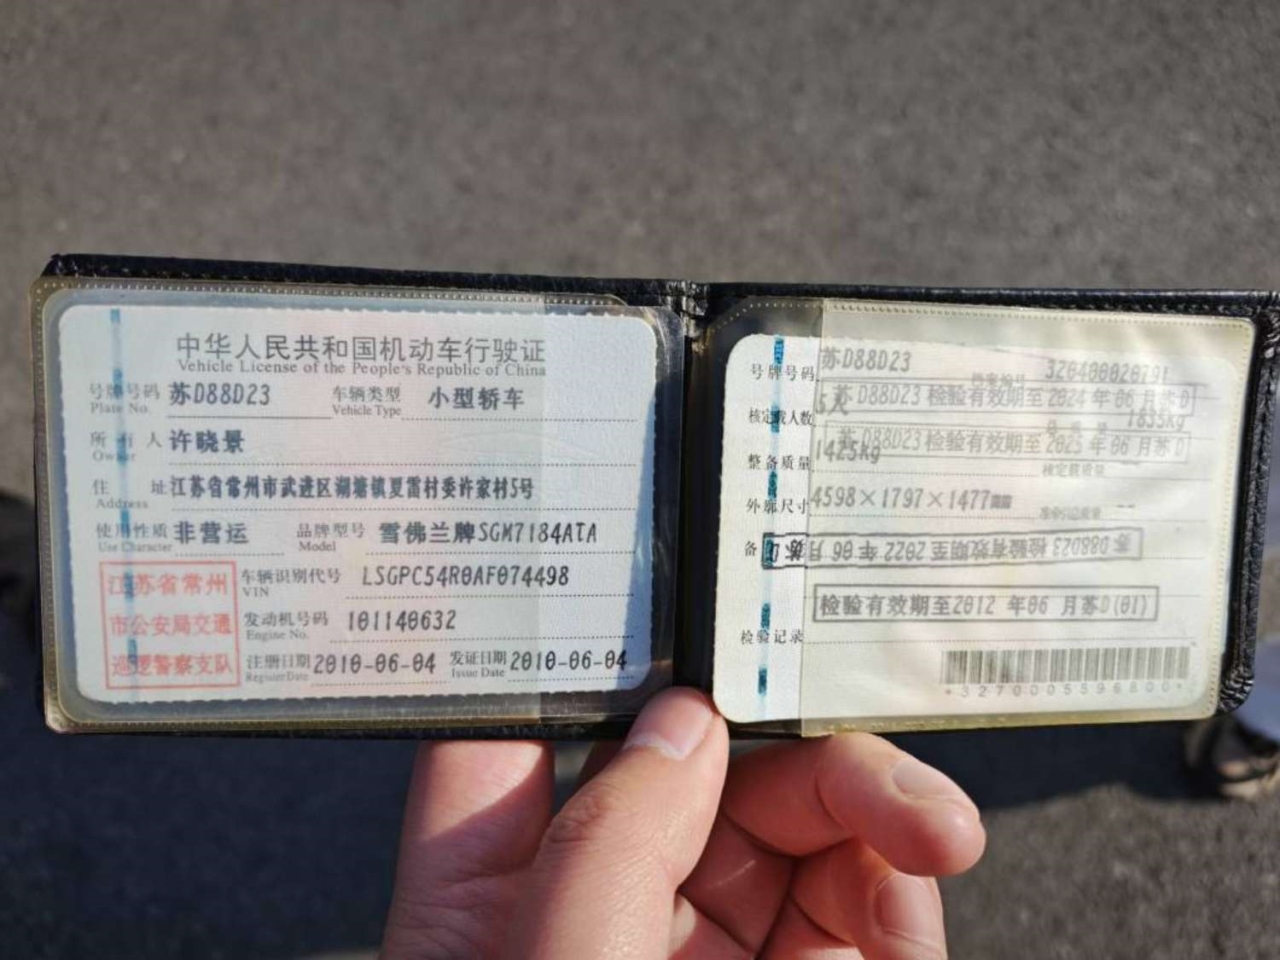 中华人民共和国机动车行驶证
Vehicle License of the People's Republic of China
号牌号码 苏D88D23 车辆类型 小型轿车
Plate No. Vehicle Type
所有人 许晓景
Owner
住址 江苏省常州市武进区湖塘镇夏雷村委许家村5号
Address
使用性质 非营运 品牌型号 雪佛兰牌SGM7184ATA
Use Character Model
江苏省常州
市公安局交通
巡逻警察支队
车辆识别代号 LSGPC54R0AF074498
VIN
发动机号码 101140632
Engine No.
注册日期 2010-06-04 发证日期 2010-06-04
Register Date Issue Date
号牌号码 苏D88D23 档案编号
苏D88D23 检验有效期至2024年06月苏D
核定载人数 5人 1835kg
苏D88D23 检验有效期至2025年06月苏D
整备质量 1425kg 核定载质量 --
外廓尺寸 4598×1797×1477mm --
备
苏D88D23 检验有效期至2022年06月苏D
检验有效期至2012年06月苏D(01)
检验记录
*3270005596800*